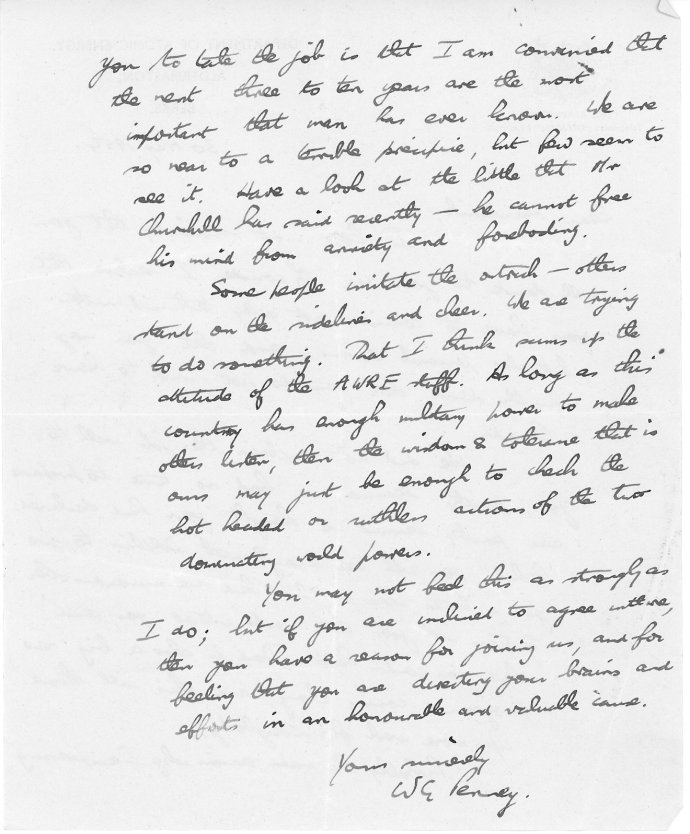 you to take the job is that I am convinced that
the next three to ten years are the most
important that man has ever known. We are
so near to a terrible precipice, but few seem to
see it. Have a look at the little that Mr
Churchill has said recently — he cannot free
his mind from anxiety and foreboding.
Some people imitate the ostrich — others
stand on the sidelines and cheer. We are trying
to do something. That I think sums up the
attitude of the AWRE staff. As long as this
country has enough military power to make
others listen, then the wisdom & tolerance that is
ours may just be enough to check the
hot headed or ruthless actions of the two
dominating world powers.
You may not feel this as strongly as
I do; but if you are inclined to agree with me,
then you have a reason for joining us, and for
feeling that you are directing your brains and
efforts in an honourable and valuable cause.
Yours sincerely
WG Penney.